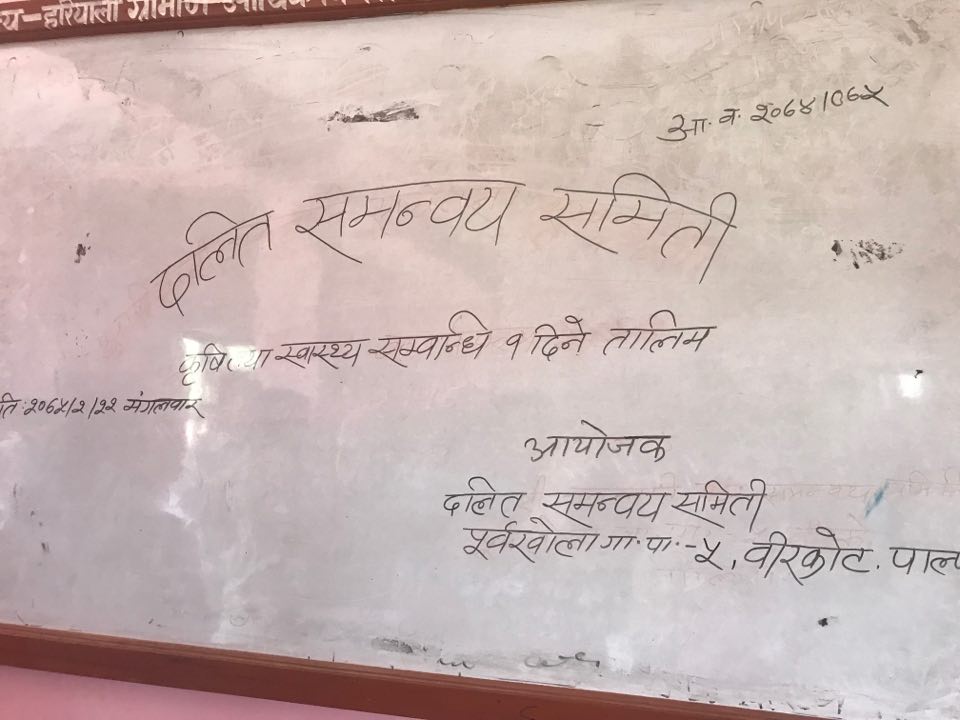 य-हरियाली ग्रामीण
आ.व. २०७४/०७५
दलित समन्वय समिती
कृषि तथा स्वास्थ्य सम्वान्धि १ दिने तालिम
ति:२०७५/२/२२ मंगलवार
आयोजक
दलित समन्वय समिती
पूर्वखोला गा.पा.-५, वीरकोट. पाल्